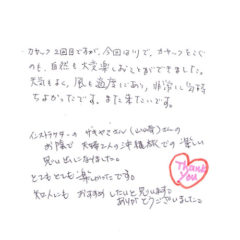 カヤック2回目ですが、今回は川で、カヤックをこぐ
のも、自然も大変楽しむことができました。
天気もよく、風も適度にあり、非常に気持
ちよかったです。また来たいです。
インストラクターの
お陰で 夫婦2人の沖縄旅での楽しい
思い出になりました。
とてもとても楽しかったです。
知人にも おすすめしたいと思います。
ありがとうございました。
Thank
You